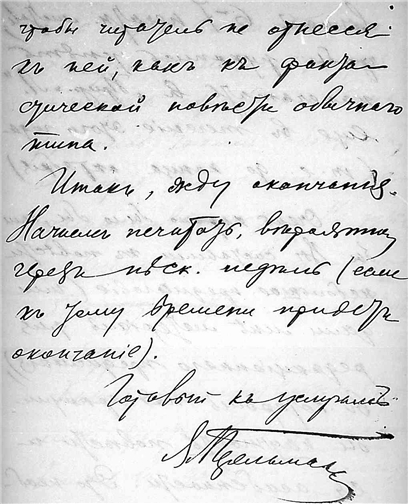 чтобы читатель не отнесся
къ ней, какъ къ фанта-
стической повѣсти обычнаго
типа.
Итакъ, жду окончанія.
Начнемъ печатать, вѣроятно,
черезъ нѣск. недѣль (если
къ тому времени придетъ
окончаніе).
Готовый къ услугамъ
Я. Перельманъ